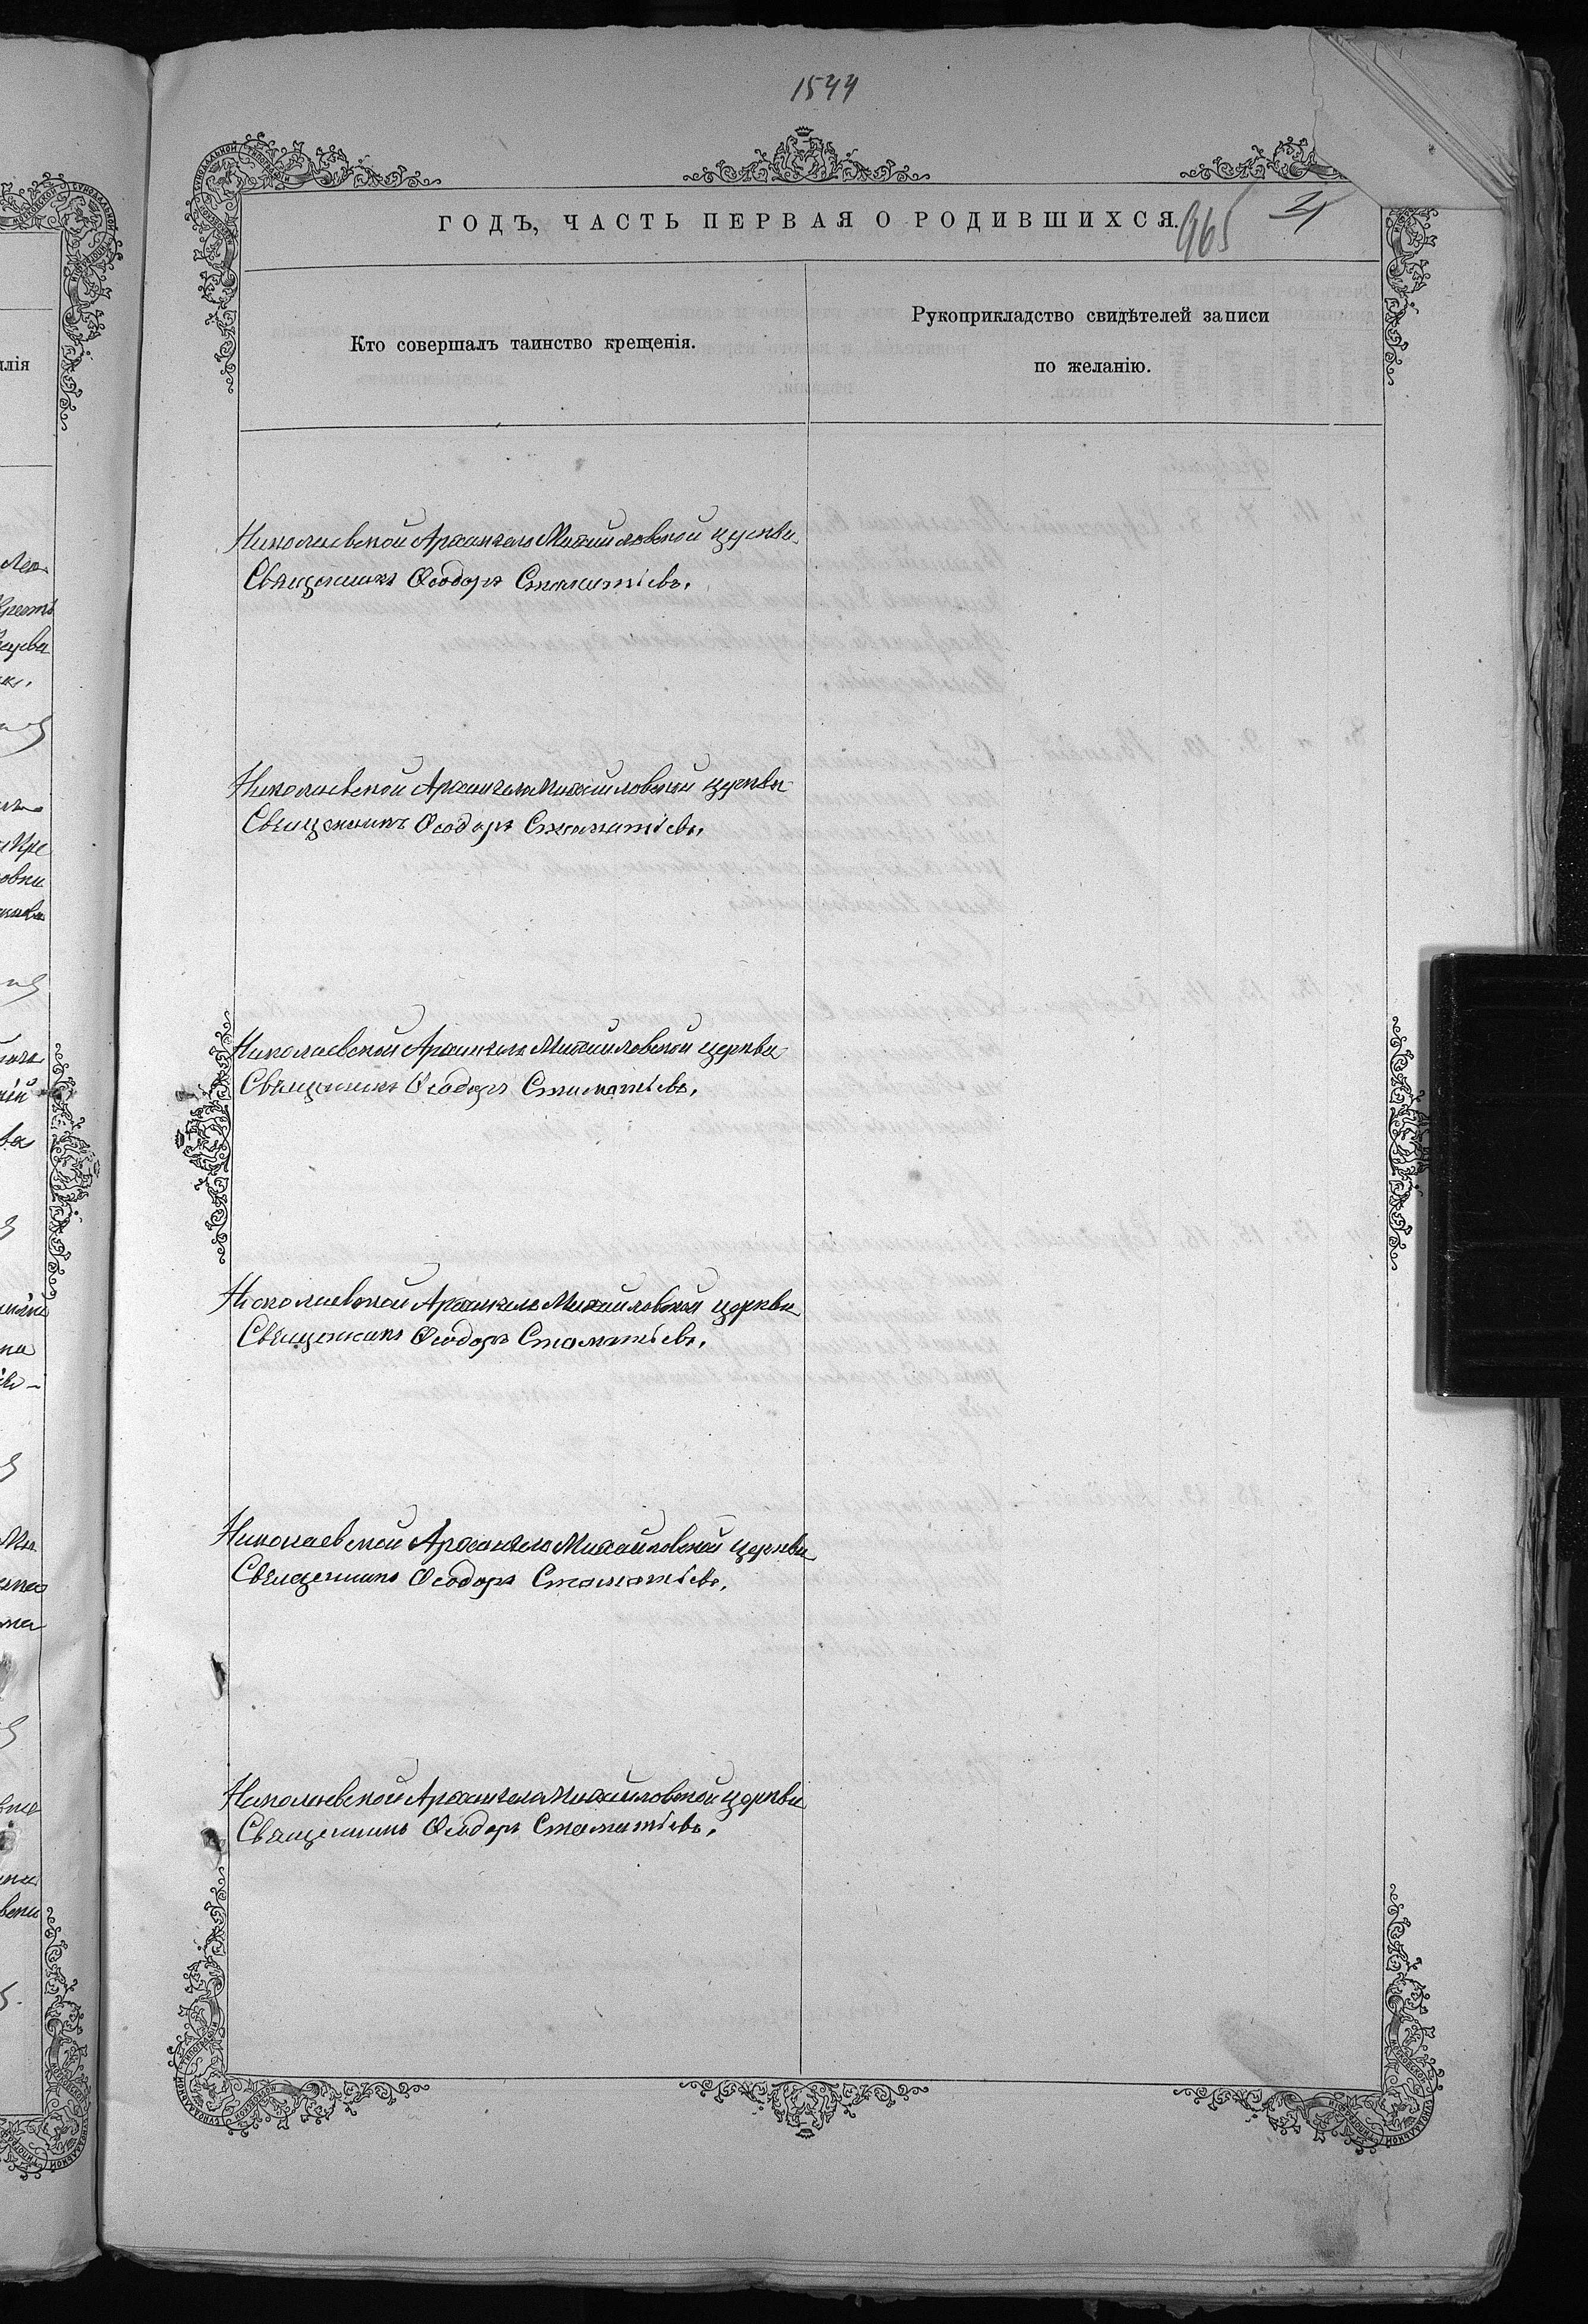 1544
ГОДЪ, ЧАСТЬ ПЕРВАЯ О РОДИВШИХСЯ.
965
Кто совершалъ таинство крещенія.
Рукоприкладство свидѣтелей записи
по желанію.
Николаевской Архангело Михайловской церкви
Священникъ Ѳеодоръ Стаматіевъ.
Николаевской Архангело Михайловской церкви
Священникъ Ѳеодоръ Стаматіевъ.
Николаевской Архангело Михайловской церкви
Священникъ Ѳеодоръ Стаматіевъ.
Николаевской Архангело Михайловской церкви
Священникъ Ѳеодоръ Стаматіевъ.
Николаевской Архангело Михайловской церкви
Священникъ Ѳеодоръ Стаматіевъ.
Николаевской Архангело Михайловской церкви
Священникъ Ѳеодоръ Стаматіевъ.